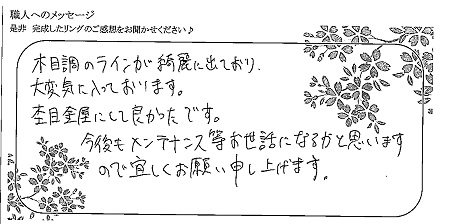 職人へのメッセージ
是非 完成したリングのご感想をお聞かせください♪
木目調のラインが綺麗に出ており、
大変気に入っております。
杢目金屋にして良かったです。
今後もメンテナンス等お世話になるかと思います
ので宜しくお願い申し上げます。